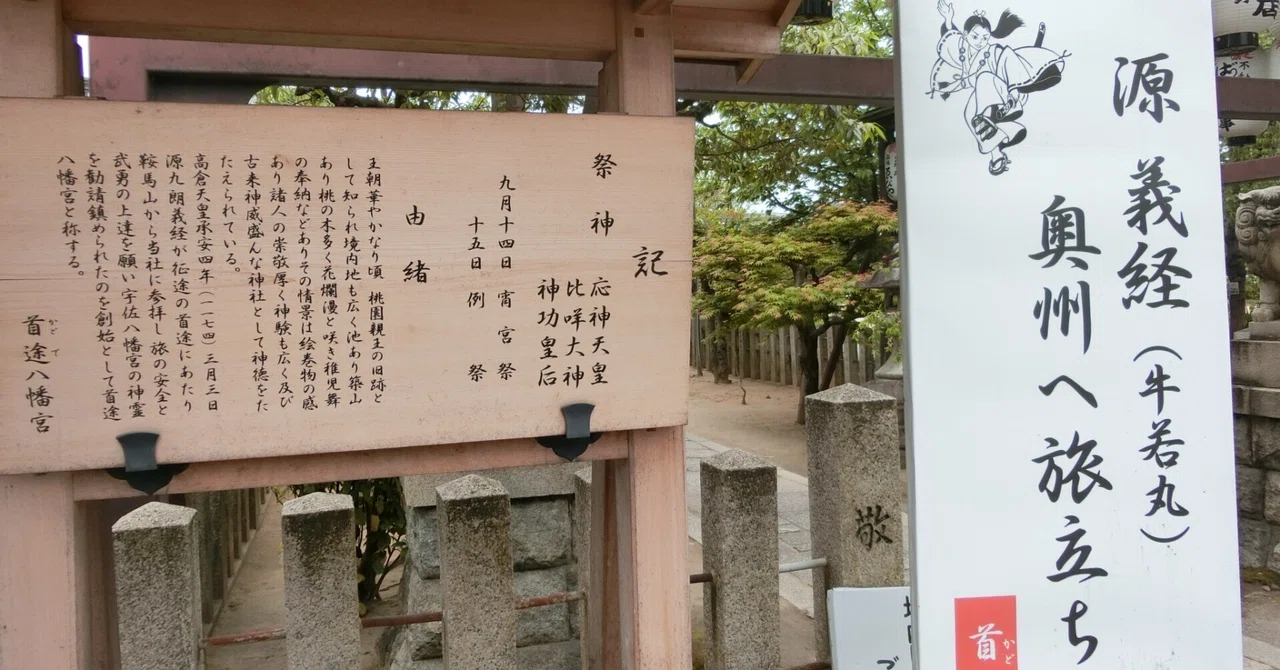 記
祭神 応神天皇
比咩大神
神功皇后
九月十四日 宵宮祭
十五日 例祭
由緒
王朝華やかなり頃 桃園親王の旧跡と
して知られ境内地も広く池あり築山
あり桃の木多く花爛漫と咲き稚児舞
の奉納などありその情景は絵巻物の感
あり諸人の崇敬厚く神験も広く及び
古来神威盛んな神社として神徳をた
たえられている。
高倉天皇承安四年（一一七四）三月三日
源九朗義経が征途の首途にあたり
鞍馬山から当社に参拝し旅の安全と
武勇の上達を願い宇佐八幡宮の神霊
を勧請鎮められたのを創始として首途
八幡宮と称する。
首途八幡宮
かどで
源義経（牛若丸）
奥州へ旅立ち
首
かど
敬